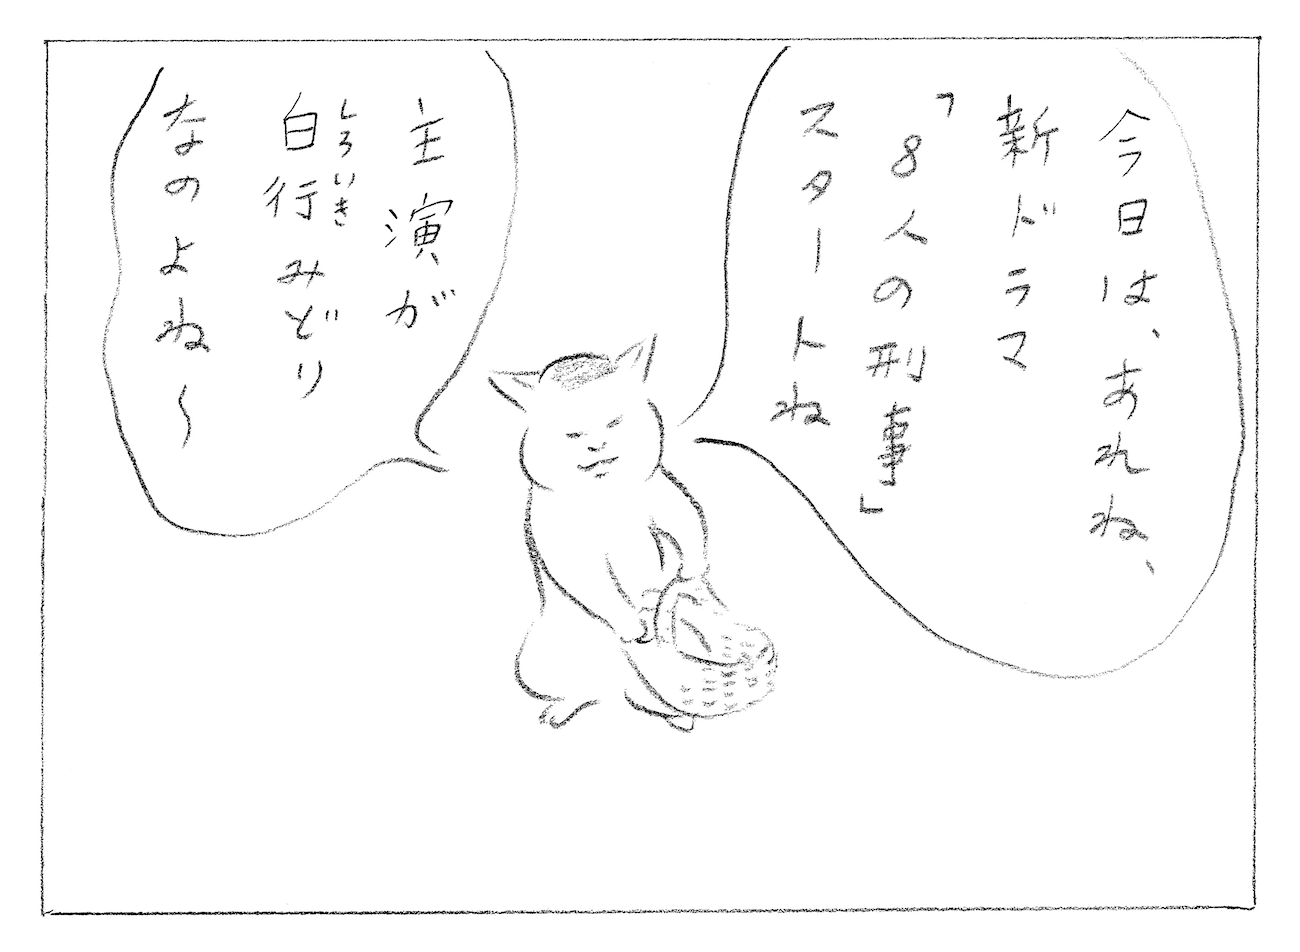 今日は、あれね、
新ドラマ
「8人の刑事」
スタートね
主演が
白行みどり
しろいき
なのよね〜